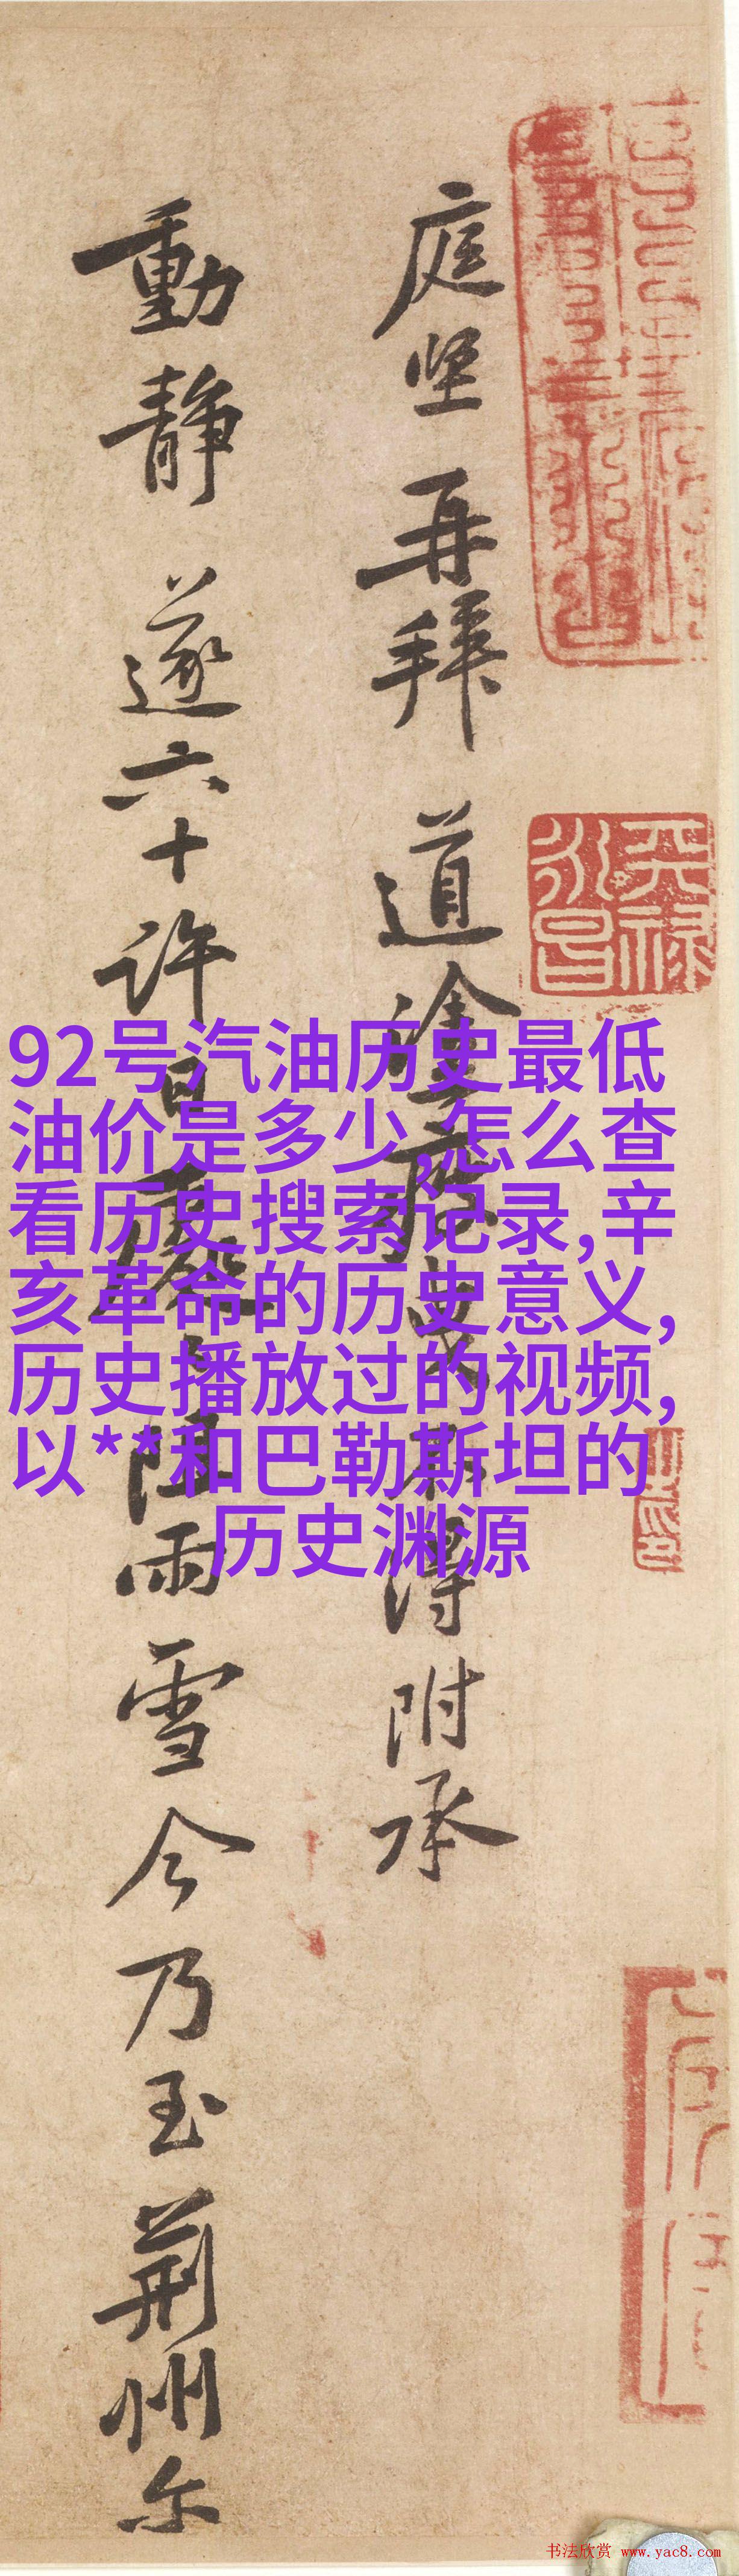 庭坚再拜道涂
得附承
動静遂六十許日
阻雨雪今乃至荆州尔
92号汽油历史最低
油价是多少,怎么查
看历史搜索记录,辛
亥革命的历史意义,
历史播放过的视频,
以**和巴勒斯坦的
历史渊源
天禄
永昌
书法欣赏 www.yac8.com